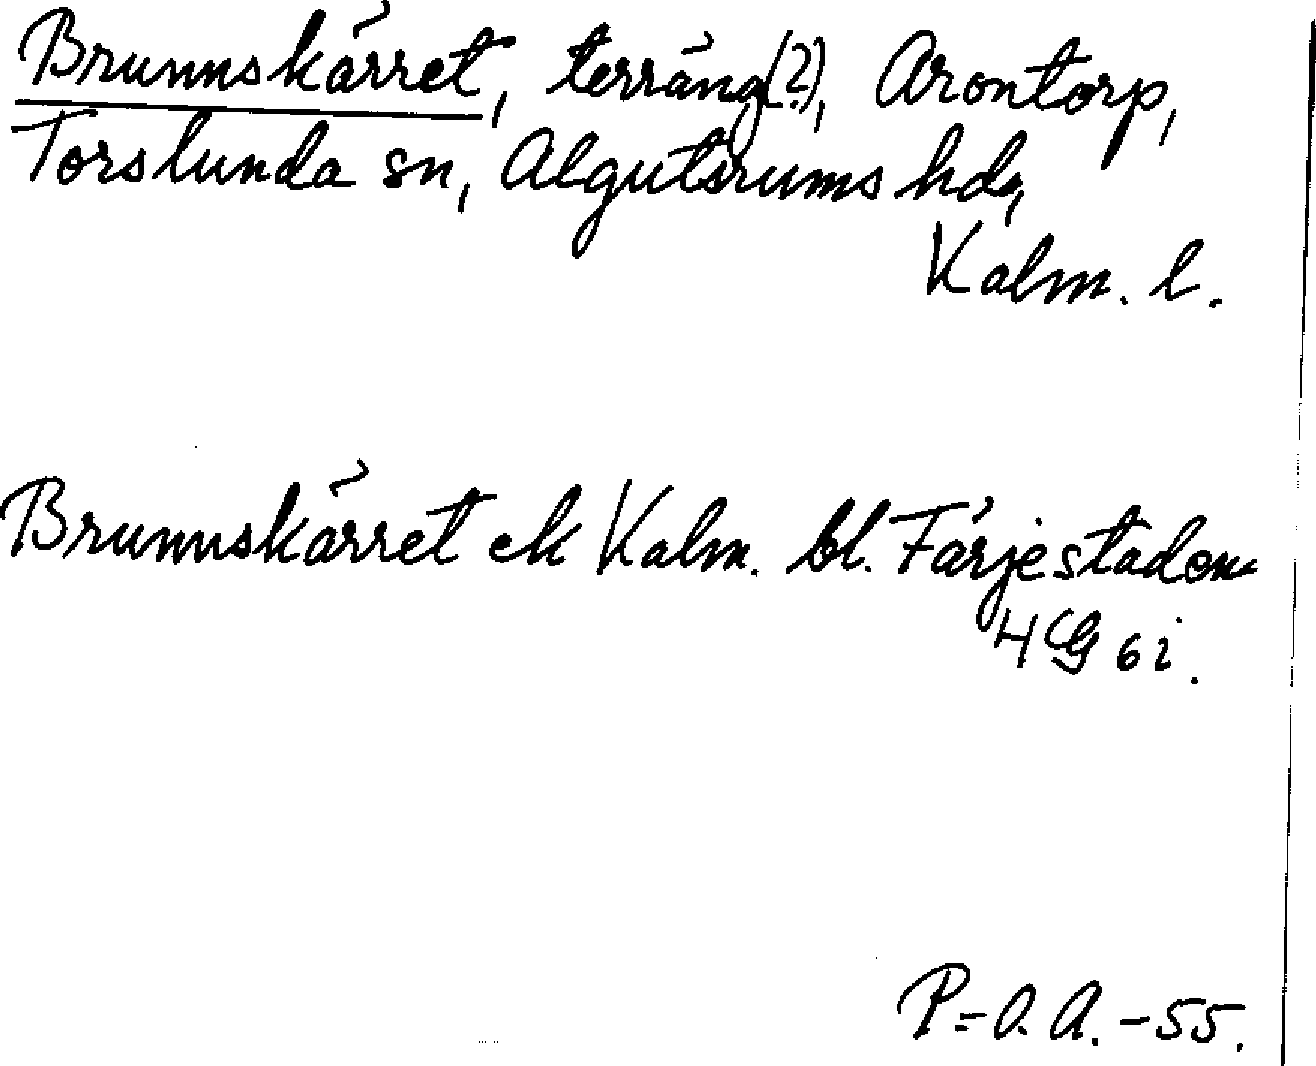 Brunnskärret, terräng(?), Arontorp,
Torslunda sn, Algutsrums hd,
Kalm. l.
Brunnskärret ek Kalm. bl. Färjestaden
4G 6i.
P=O. A. -55.